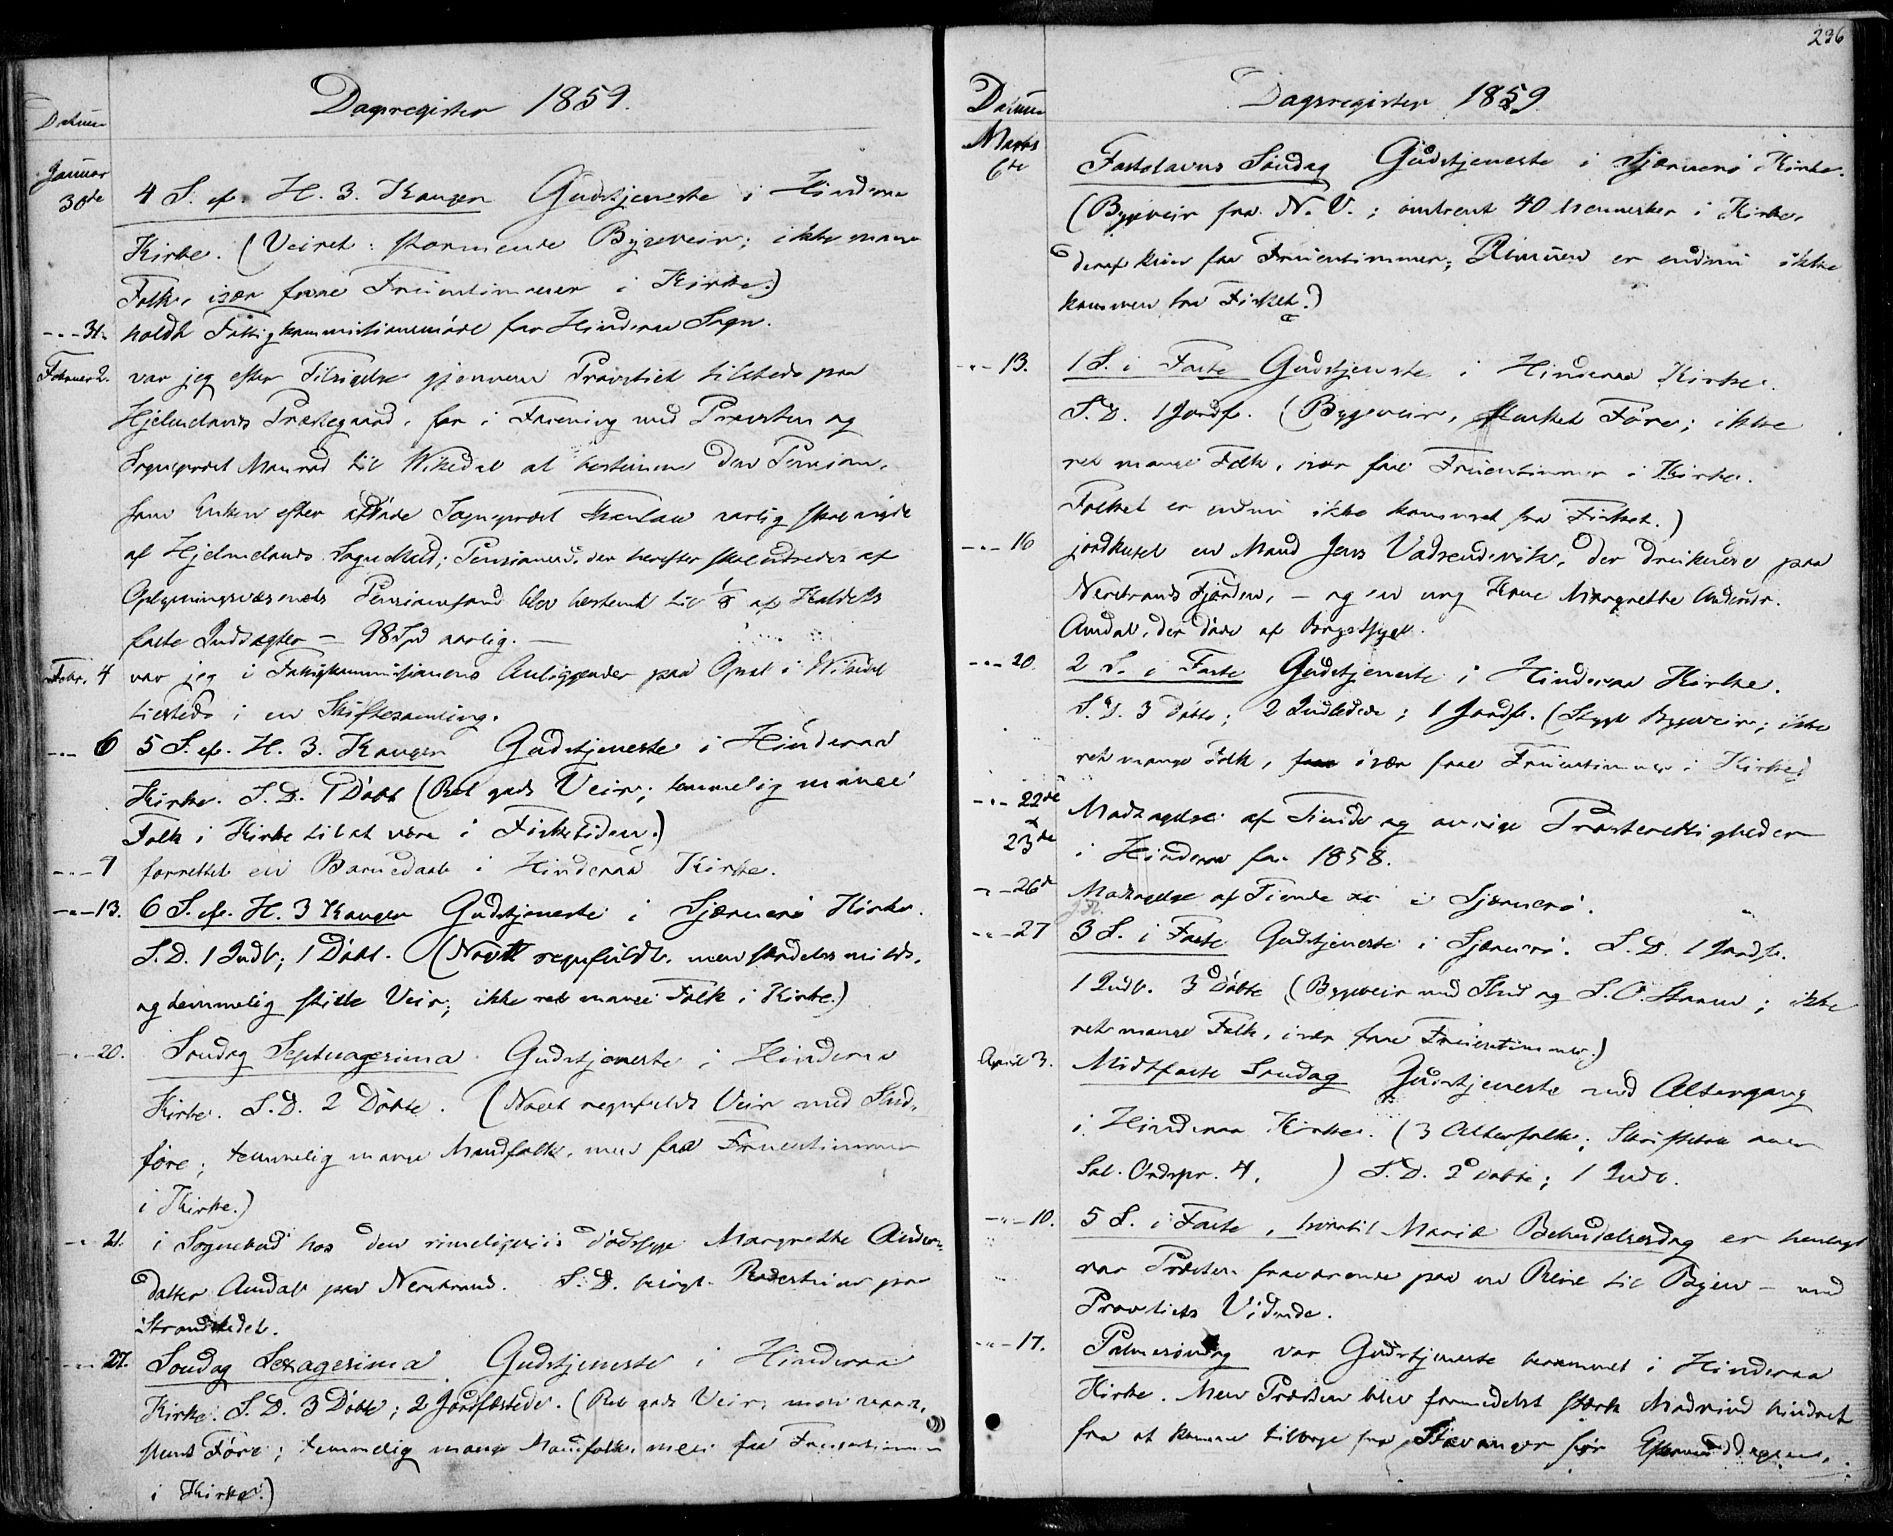 Dagsregister 1859.
Datum
Januar
30de 4 S. ef. H. 3. Konger Gudstjeneste i Hinderaa
Kirke. (Veiret: stormende Bygeveir; ikke mange
Folk, især færre Fruentimmer i Kirke.)
31. holdt Fattigkommissionsmøde for Hinderaa Sogn.
Februar 2. var jeg efter Tilsigelse gjennem Provstiet tilstede paa
Hjelmelands Præstegaard, for i Forening med Provsten og
Sognepræst Monrad til Wikedal at bestemme den Pension,
som Enken efter afdøde Sognepræst aarlig skal nyde
af Hjelmelands Sognekald; Pensionen, der herefter skal udredes af
Oplysningsvæsenets Pensionsfond blev bestemt til 1/8 af Kaldets
faste Indtægter – 98 Spd aarlig. –
Febr. 4 var jeg i Fattigkommissionens Anliggender paa i Wikedal
tilstede i en Skiftesamling.
6 5 S. ef. H. 3. Konger Gudstjeneste i Hinderaa
Kirke. S. D. 1 Døbt (Ret godt Veir; temmelig mange
Folk i Kirke til at være i Fisketiden.)
7 forrettet en Barnedaab i Hinderaa Kirke.
13. 6 S. ef. H. 3 Konger Gudstjeneste i Sjærnerø Kirke.
S. D. 1 Indl; 1 Døbt. (Noget regnfuldt, men særdeles mildt,
og temmelig stille Veir; ikke ret mange Folk i Kirke.)
20. Søndag Septuagesima Gudstjeneste i Hinderaa
Kirke. S. D. 2 Døbte. (Noget regnfuldt Veir med Slud-
føre; temmelig mange Mandfolk, men faa Fruentimmer
i Kirke.)
21. i Sognebud hos den rimeligviis dødssyge Margrethe Anders-
datter Amdal paa Nerstrand. S. D. paa
Strandstedet.
27. Søndag Sexagesima Gudstjeneste i Hinderaa
Kirke. S. D. 3 Døbte; 2 Jordfæstede. (Ret godt Veir, men
Føre; temmelig mange Mandfolk, men faa Fruentimmer
i Kirke.)
236
Dagsregister 1859
Datum
Marts
6te Fastelavns Søndag Gudstjeneste i Sjærnerø Kirke.
(Bygeveir fra N. V.; omtrent 40 Mennesker i Kirke,
deraf kun faa Fruentimmer; Almuen er endnu ikke
kommen fra Fisket.)
13. 1 S. i Faste Gudstjeneste i Hinderaa Kirke.
S. D. 1 Jordf. (Bygeveir, Føre; ikke
ret mange Folk, især faae Fruentimmer i Kirke.
Folket er endnu ikke kommet fra Fisket.)
16 jordfæstet en Mand Jens Vadsendvik, der druknede paa
Nerstrands Fjorden, – og en ung Kone Margrethe Andersdr.
Amdal, der døde af Brystsyge.
20. 2 S. i Faste Gudstjeneste i Hinderaa Kirke.
S. D. 3 Døbte; 2 Indledede; 1 Jordf. (Stygt Bygeveir; ikke
ret mange Folk, især faae Fruentimmer i Kirke)
22de
23de Modtagelse af Tiende og øvrige Præsterettigheder
i Hinderaa for 1858.
26de Modtagelse af Tiende i Sjærnerø.
27 3 S. i Faste Gudstjeneste i Sjærnerø. S. D. 1 Jordf.
1 Indl. 3 Døbte (Bygeveir med Slud og S. O. Storm; ikke
ret mange Folk, især faae Fruentimmer.)
April 3. Midtfaste Søndag Gudstjeneste med Altergang
i Hinderaa Kirke. (3 Alterfolk; Skriftetale over
Sal. Ordspr. 4, ) S. D. 2 Døbte; 1 Indl.
10. 5 S. i Faste, hvortil Mariæ Bebudelsesdag er henlagt
var Præsten fraværende paa en Reise til Byen – med
Provstiets Vidende.
17. Palmesøndag var Gudstjeneste berammet i Hinderaa
Kirke. Men Præsten blev formedelst stærk Modvind hindret
fra at komme tilbage fra Stavanger før Eftermiddagen.